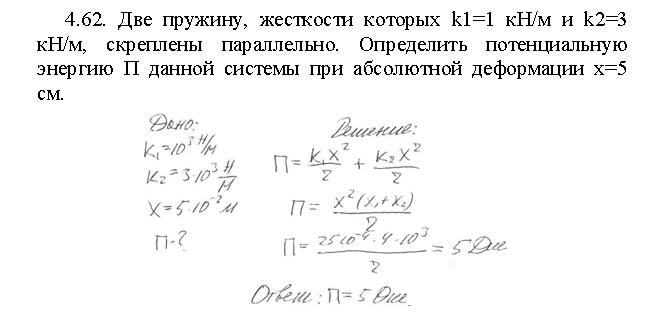 4.62. Две пружину, жесткости которых k1=1 кН/м и k2=3
кН/м, скреплены параллельно. Определить потенциальную
энергию П данной системы при абсолютной деформации x=5
см.
Дано:
K₁=10³ Н/м
K₂=3·10³ Н/м
X=5·10⁻² м
П-?
Решение:
П = K₁X²/2 + K₂X²/2
П = X²(X₁+X₂)/2
П = 25·10⁻⁴·4·10³/2 = 5 Дж
Ответ: П = 5 Дж.